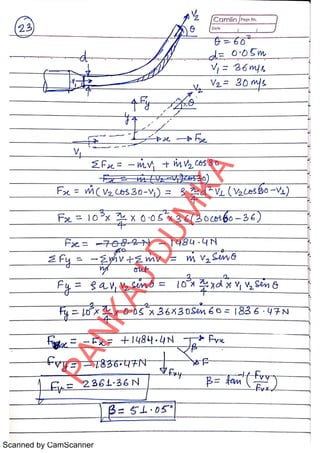 Camlin Page No.
Date
23
V₂
θ
d
θ = 60°
d = 0.05m
V₁ = 36 m/s
V₂ = 30 m/s
Fy
V₂
θ
y
x
Fx
V₁
ΣFx = -ṁv₁ + ṁv₂cos30
Fx = ṁ(V₂-V₁)cos30)
Fx = ṁ(V₂cos30-V₁) = ρ π/4 d² V₁ (V₂cos60-V₁)
Fx = 10³ × π/4 × 0.05² × 36 (30cos60-36)
Fx = -708.2N 1484.4N
ΣFy = -Σṁv + Σṁv = ṁ V₂ Sinθ
in out
Fy = ρ a V₁ V₂ Sinθ = 10³ × π/4 × d² × V₁ V₂ Sinθ
Fy = 10³ × π/4 × 0.05² × 36×30 Sin 60 = 1836.47N
Fvx = -Fx = +1484.4N
Fvx
β
F
Fvy
Fvy = -1836.47N
Fv = 2361.36N
β = tan⁻¹ (Fvy/Fvx)
β = 51.05°
PANKAJ DUMKA
Scanned by CamScanner